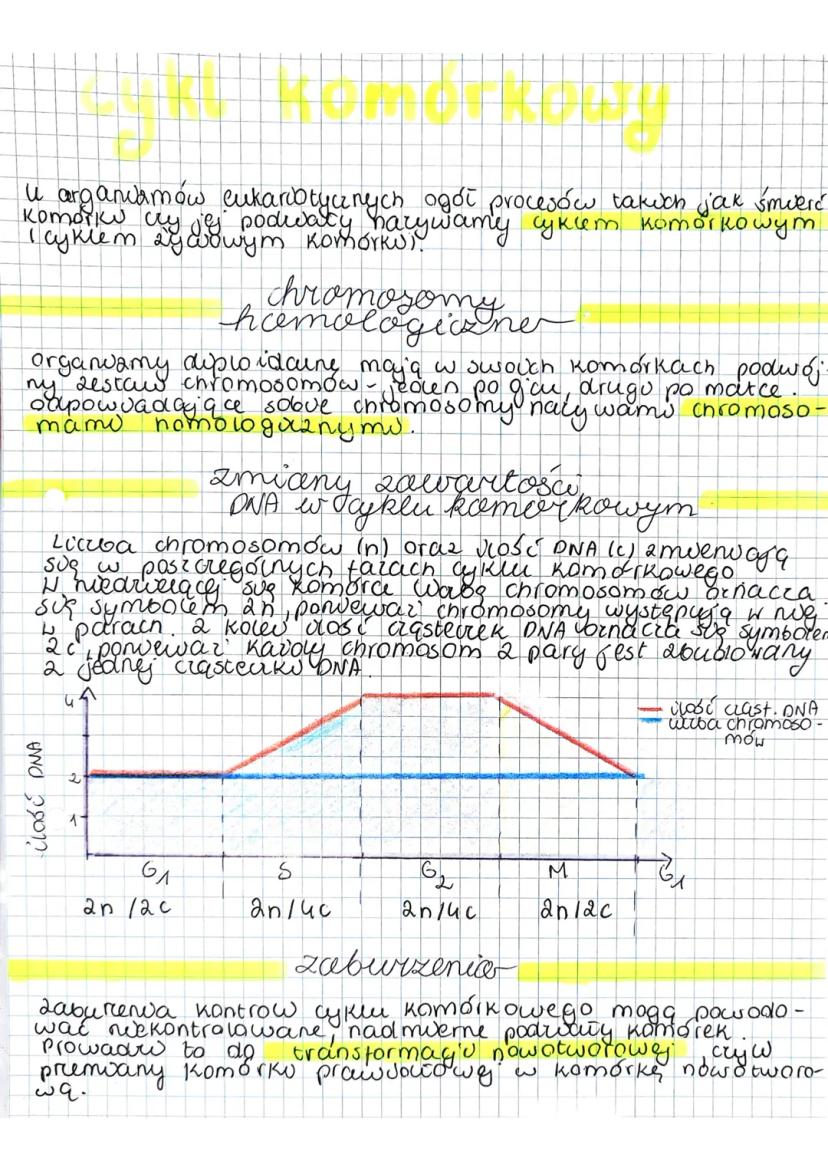 cykl komórkowy
u organizmów eukariotycznych ogół procesów takich jak śmierć
komórki czy jej podziały nazywamy cyklem komórkowym
(cyklem życiowym komórki).
chromosomy
homologiczne
organizmy diploidalne mają w swoich komórkach podwój-
ny zestaw chromosomów - jeden po ojcu, drugi po matce.
odpowiadające sobie chromosomy nazywamy chromoso-
mami homologicznymi.
zmiany zawartości
DNA w cyklu komórkowym
Liczba chromosomów (n) oraz ilość DNA (c) zmieniają
się w poszczególnych fazach cyklu komórkowego
W niedzielącej się komórce liczbę chromosomów oznacza
się symbolem 2n, ponieważ chromosomy występują w niej
w parach. z kolei ilość cząsteczek DNA oznacza się symbolem
2c, ponieważ każdy chromosom z pary jest zbudowany
z jednej cząsteczki DNA.
4
ilość cząst. DNA
liczba chromoso-
mów
ilość DNA
2
1
G1 S G2 M G1
2n/2c 2n/4c 2n/4c 2n/2c
zaburzenia
zaburzenia kontroli cyklu komórkowego mogą powodo-
wać niekontrolowane, nadmierne podziały komórek.
Prowadzi to do transformacji nowotworowej, czyli
przemiany komórki prawidłowej w komórkę nowotworo-
wą.